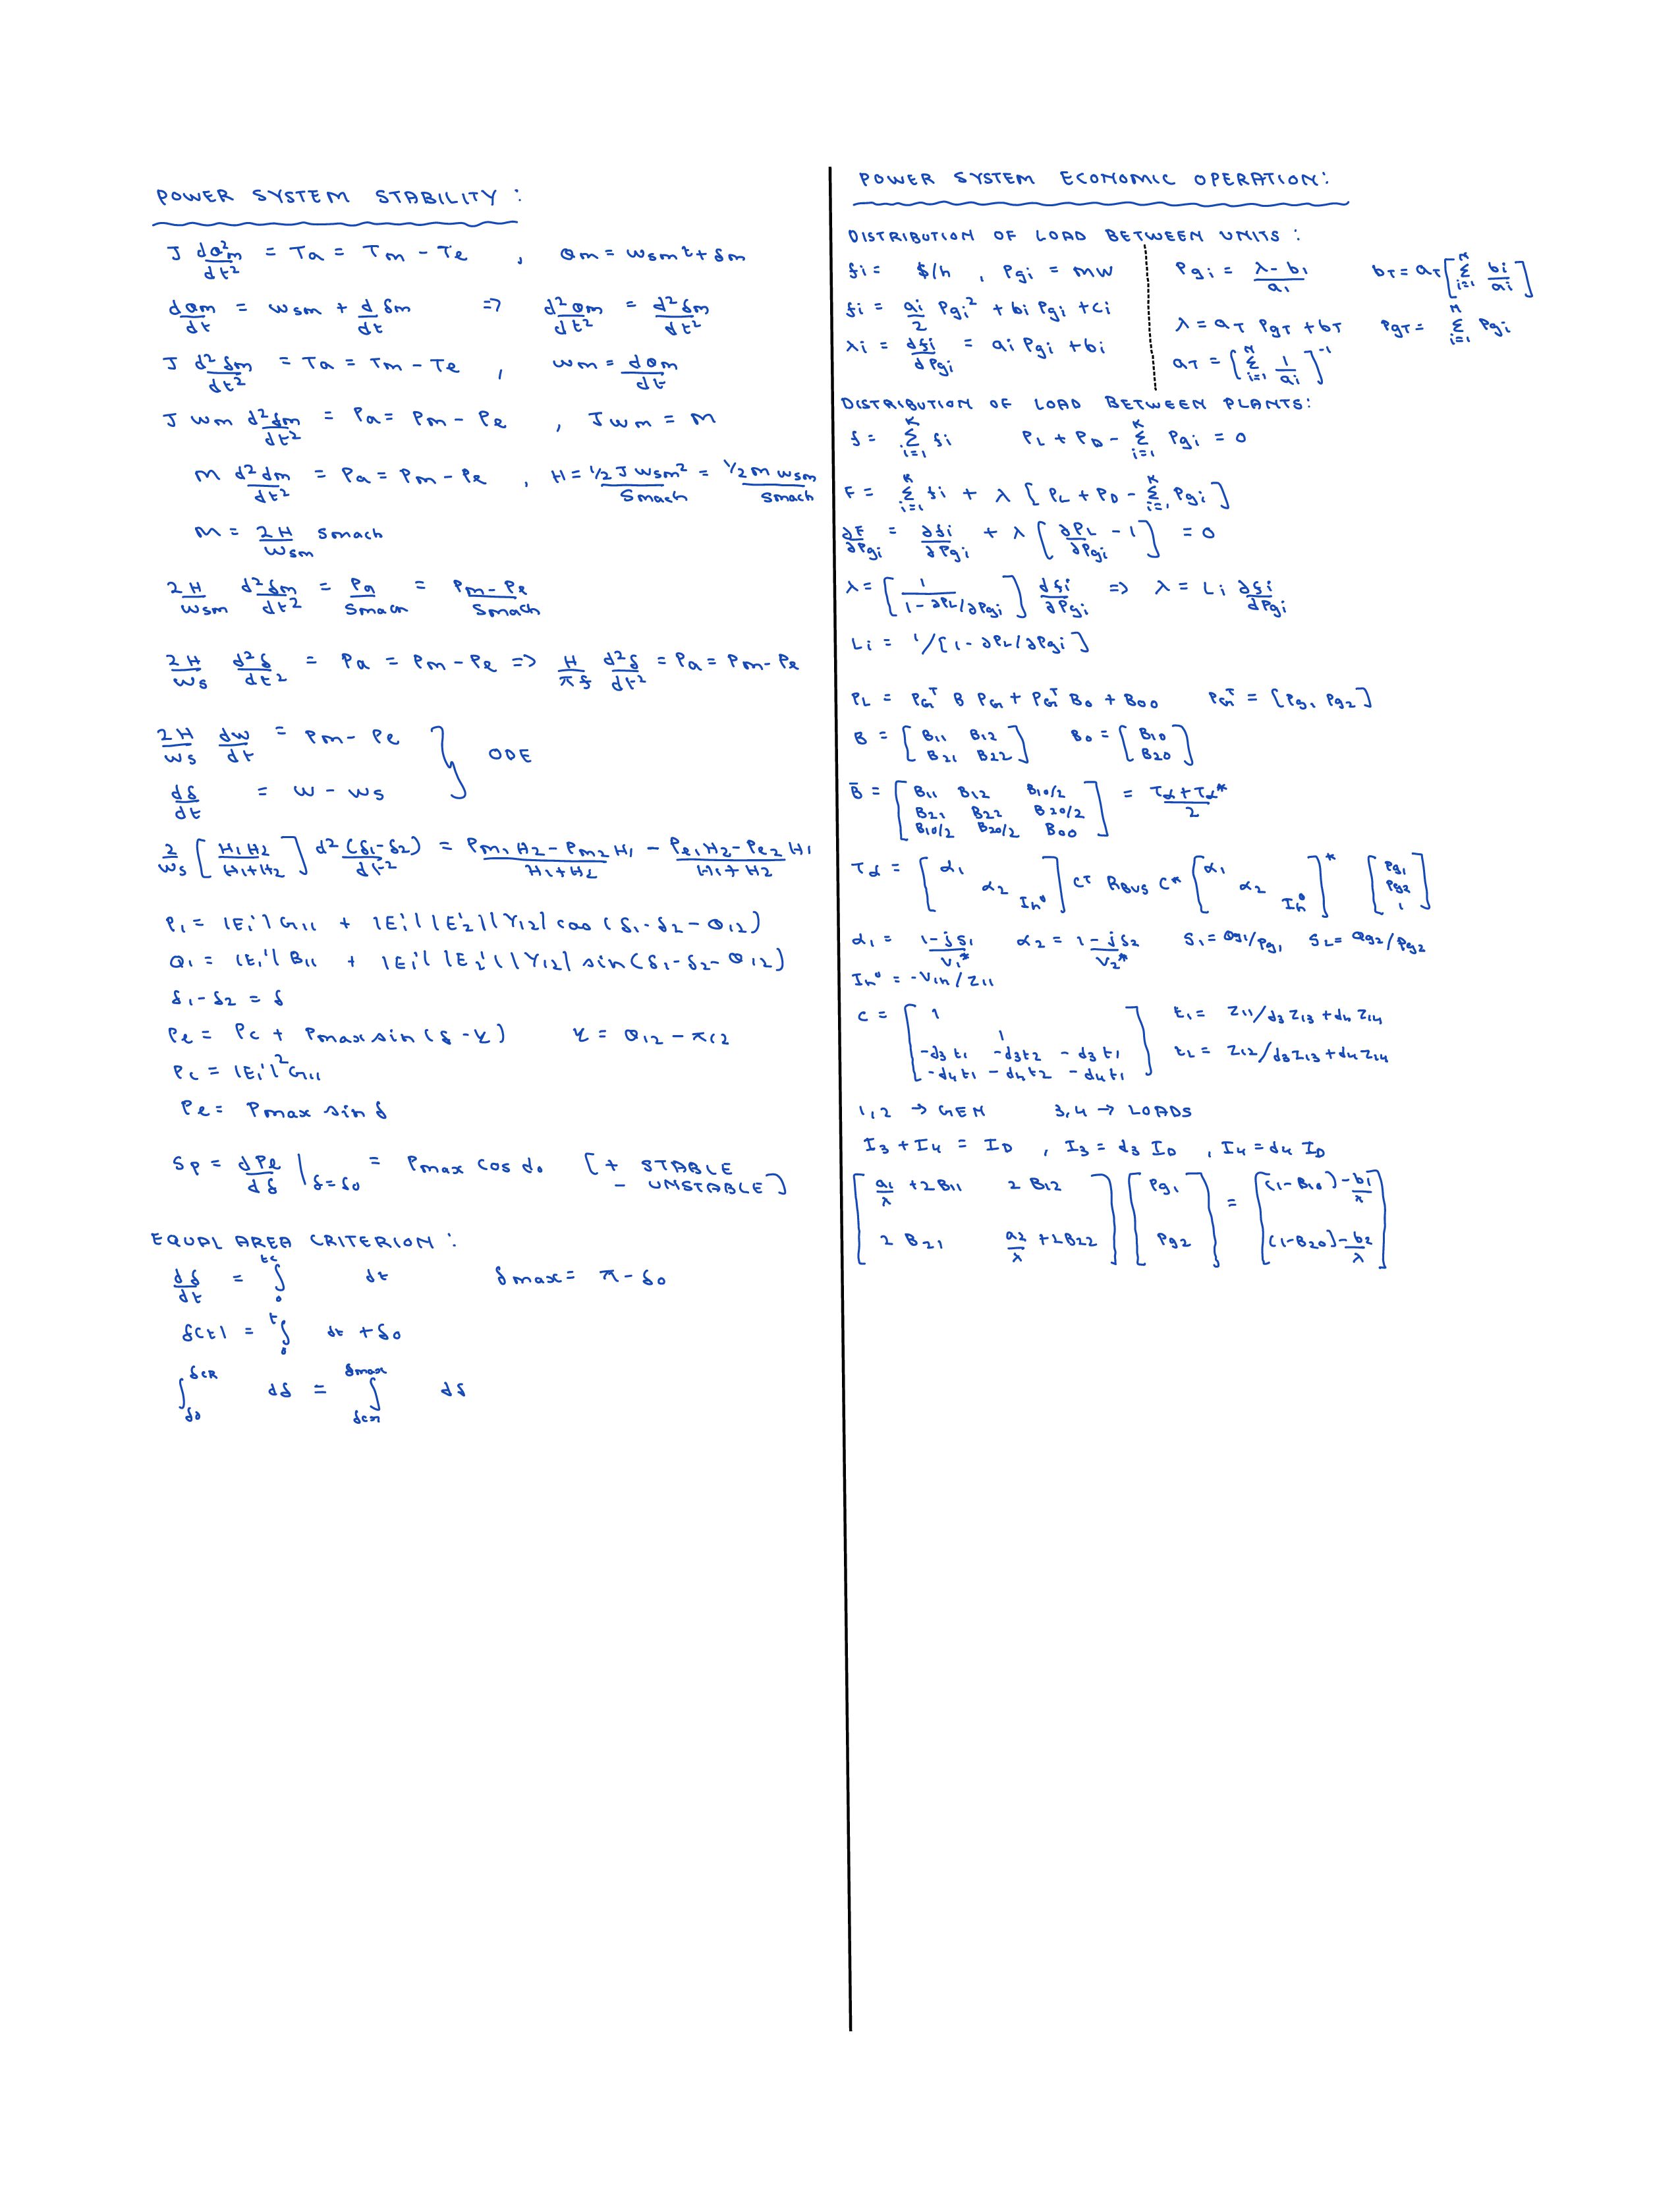 POWER SYSTEM STABILITY :
J dθ²m/dt² = Ta = Tm - Te , θm = wsmt + δm
dθm/dt = wsm + d/dt δm => d²θm/dt² = d²δm/dt²
J d²δm/dt² = Ta = Tm - Te , wm = dθm/dt
J wm d²δm/dt² = Pa = Pm - Pe , Jwm = M
M d²dm/dt² = Pa = Pm - Pe , H = 1/2 J wsm²/Smach = 1/2 m wsm/Smach
M = 2H/wsm Smach
2H/wsm d²δm/dt² = Pa/Smach = Pm-Pe/Smach
2H/ws d²δ/dt² = Pa = Pm - Pe => H/πf d²δ/dt² = Pa = Pm - Pe
2H/ws dw/dt = Pm - Pe } ODE
dδ/dt = w - ws
2/ws [H1H2/H1+H2] d²(δ1-δ2)/dt² = Pm1H2-Pm2H1/H1+H2 - Pe1H2-Pe2H1/H1+H2
P1 = |E1'|G11 + |E1'||E2'||Y12| cos(δ1-δ2-θ12)
Q1 = |E1'|B11 + |E1'||E2'||Y12| sin(δ1-δ2-θ12)
δ1-δ2 = δ
Pe = Pc + Pmax sin(δ-γ) γ = θ12 - π/2
Pc = |E1'|²G11
Pe = Pmax sin δ
Sp = dPe/dδ |δ=δ0 = Pmax cos d0 [+ STABLE
- UNSTABLE]
EQUAL AREA CRITERION :
dδ/dt = ∫0^tc dt δmax = π - δ0
δ(t) = ∫0^t dt + δ0
∫δ0^δCR dδ = ∫δcr^δmax dδ
POWER SYSTEM ECONOMIC OPERATION:
DISTRIBUTION OF LOAD BETWEEN UNITS :
fi = $/h , Pgi = MW
fi = ai/2 Pgi² + bi Pgi + ci
λi = dfi/dPgi = ai Pgi + bi
Pgi = λ-b1/a1 bT = aT [Σ i=1 N bi/ai]
λ = aT PgT + bT PgT = Σ i=1 N Pgi
aT = [Σ i=1 N 1/ai]⁻¹
DISTRIBUTION OF LOAD BETWEEN PLANTS:
f = Σ i=1 K fi PL + PD - Σ i=1 K Pgi = 0
F = Σ i=1 K fi + λ [PL + PD - Σ i=1 K Pgi]
∂F/∂Pgi = ∂fi/∂Pgi + λ [∂PL/∂Pgi - 1] = 0
λ = [1/1-∂PL/∂Pgi] dfi/∂Pgi => λ = Li ∂fi/∂Pgi
Li = 1/[1-∂PL/∂Pgi]
PL = PGᵀ B PG + PGᵀ B0 + B00 PGᵀ = [Pg1 Pg2]
B = [B11 B12 B0 = [B10
B21 B22] B20]
B̄ = [B11 B12 B10/2
B21 B22 B20/2
B10/2 B20/2 B00] = Tα+Tα*/2
Tα = [α1 α2 In⁰] Cᵀ RBUS C* [α1 α2 In⁰]* [Pg1 Pg2 1]
α1 = 1-js1/V1* α2 = 1-js2/V2* S1 = Qg1/Pg1 S2 = Qg2/Pg2
In⁰ = -V1n/Z11
C = [1
1
-d3t1 -d3t2 -d3t1
-d4t1 -d4t2 -d4t1]
t1 = Z11/d3Z13+d4Z14
t2 = Z12/d3Z13+d4Z14
1,2 → GEN 3,4 → LOADS
I3 + I4 = ID , I3 = d3 ID , I4 = d4 ID
[a1/λ + 2B11 2B12] [Pg1] = [(1-B10)-b1/λ]
[2B21 a2/λ + 2B22] [Pg2] [(1-B20)-b2/λ]